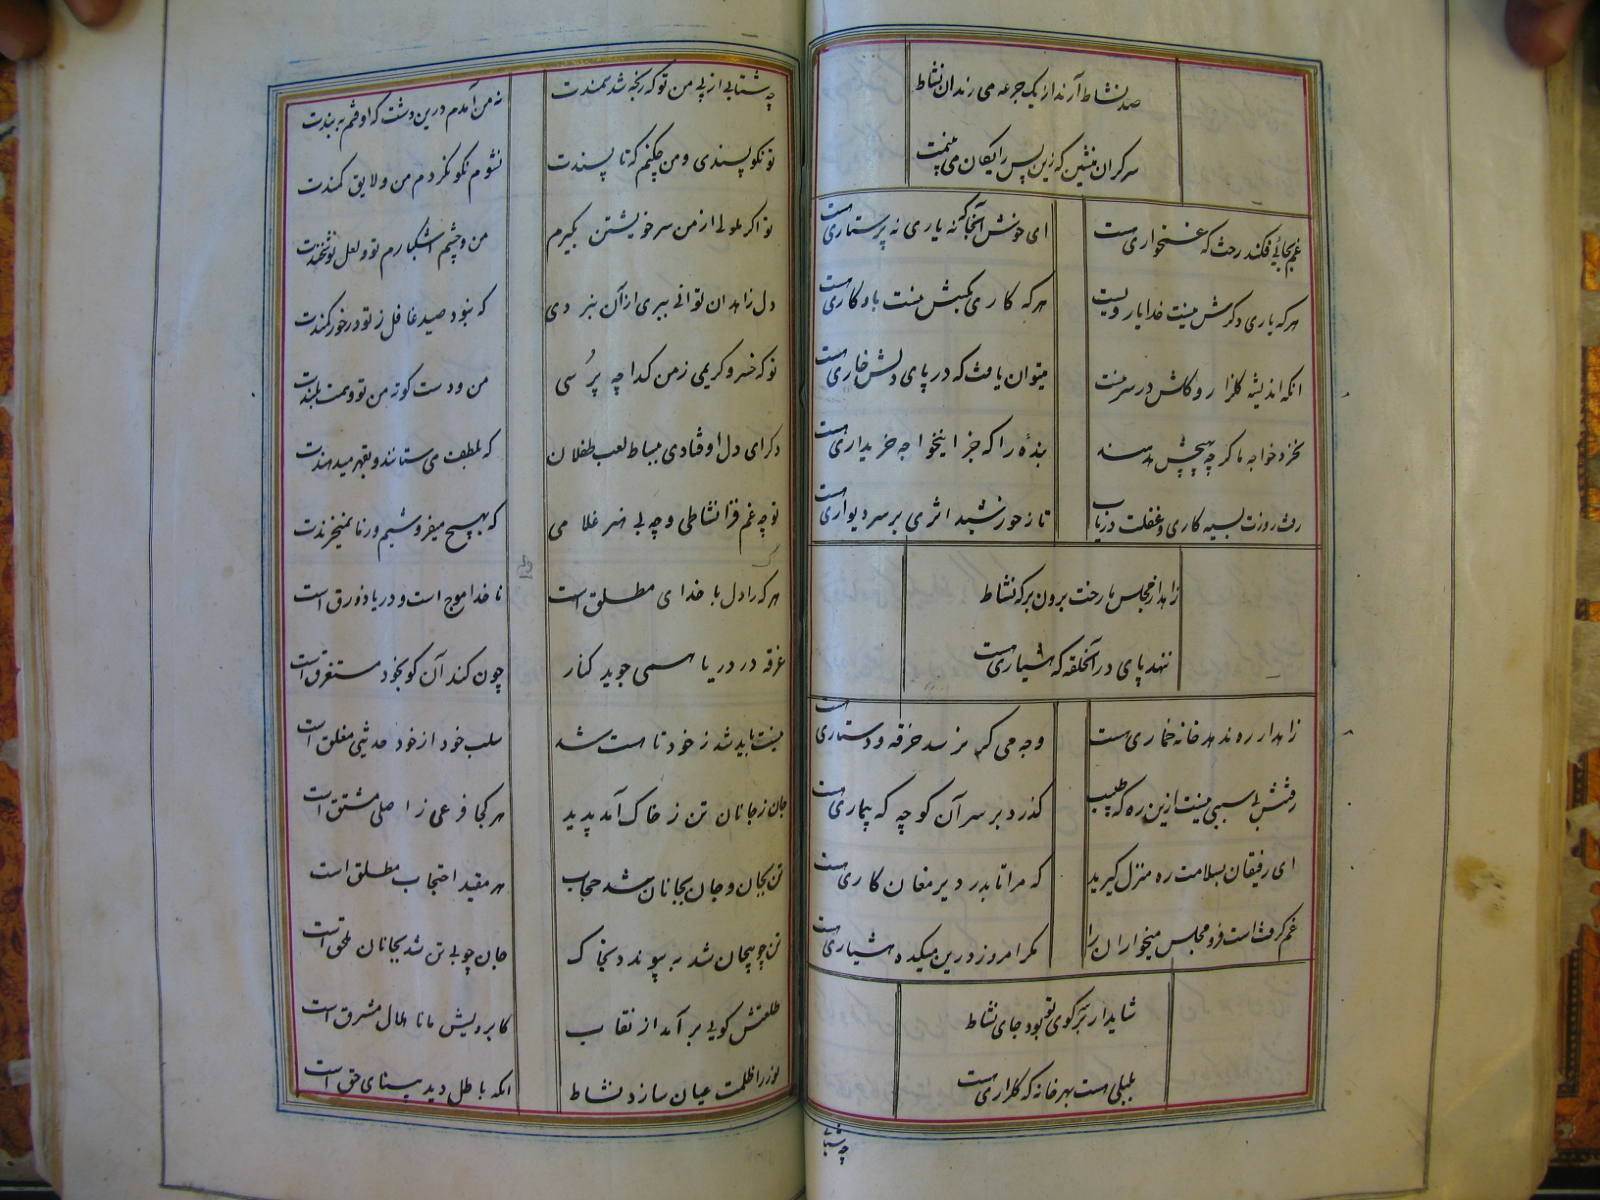 صد نشاط آرند از یک جرعه می رندان نشاط
سرگران منشین که زین پس رایگان می بینمت
غم بجائی فکند رخت که غمخواری هست
ای خوش آنجا که نه یاری نه پرستاری هست
هر که یاری دگرش نیست خدا یار ویست
هر که کاری بکسش نیست باو کاری هست
آنکه اندیشه گلزار رو کاش در سر نیست
میتوان یافت که در پای دلش خاری هست
نخرد خواجه ما گر چه بهیچش بدهند
بنده را که جز اینخواجه خریداری هست
رفت روزت بسیه کاری و غفلت دریاب
تا ز خورشید اثری بر سر دیواری هست
زاهد از مجلس ما رخت برون بر که نشاط
ننهد پای در آنحلقه که هشیاری هست
زاهد ار ره ندهد خانه خماری هست
وجه می گر نرسد خرقه و دستاری هست
رفتنش بی سببی نیست ازین ره که طبیب
گذرد بر سر آن کوچه که بیماری هست
ای رفیقان بسلامت ره منزل گیرید
که مرا تا بدر دیر مغان کاری هست
غم گرفت است فرو مجلس میخواران را
مگر امروز درین میکده هشیاری هست
شاید ار بر سر کوی تو بود جای نشاط
بلبلی هست بهر خانه که گلزاری هست
چه شتابی
چه شتابی از پی من تو که رنجه شد سمندت
نه من آمدم درین دشت که اوفتم به بندت
تو نکو پسندی و من چکنم که تا پسندت
نشوم نکو نکردم من و لایق کمندت
تو اگر ملولی از من سر خویشتن بگیرم
من و چشم اشکبارم تو و لعل نوشخندت
دل زاهدان توانی ببری از آن نبردی
که نبود صید غافل ز تو در خور کمندت
تو که خسرو کریمی ز من گدا چه پرسی
من و دست کوته من تو و همت بلندت
دگر ای دل اوفتادی ببساط لعب طفلان
که بلطف می ستانند و بقهر میدهندت
تو چه غم فزا نشاطی و چه بی هنر غلامی
که بهیچ میفروشیم و رنما نمیخرندت
هر که را دل با خدای مطلق است
ناخدا موج است و دریا زورق است
غرقه در دریا همی جوید کنار
چون کند آن کو بخود مستغرق است
نیست باید شد ز خود تا هست شد
سلب خود از خود حدیثی مغلق است
جان ز جانان تن ز خاک آمد پدید
هر کجا فرعی ز اصلی مشتق است
تن بجان و جان بجانان شد حجاب
هر مقید احتجاب مطلق است
تن چو بیجان شد به پیوندد بخاک
جان چو بی تن شد بجانان ملحق است
طلعتش گویی بر آمد از نقاب
کابرویش مانا هلال مشرق است
نور را ظلمت عیان سازد نشاط
آنکه باطل دید بینای حق است